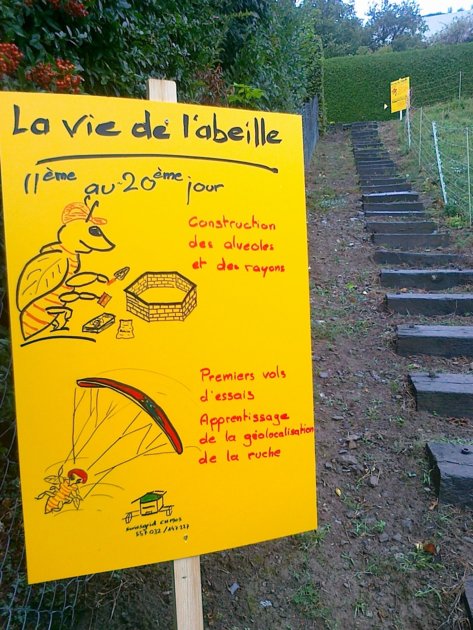 La vie de l'abeille
11ème au 20ème jour
Construction
des alveoles
et des rayons
Premiers vols
d'essais
Apprentissage
de la géolocalisation
de la ruche
557.032 / 147.127